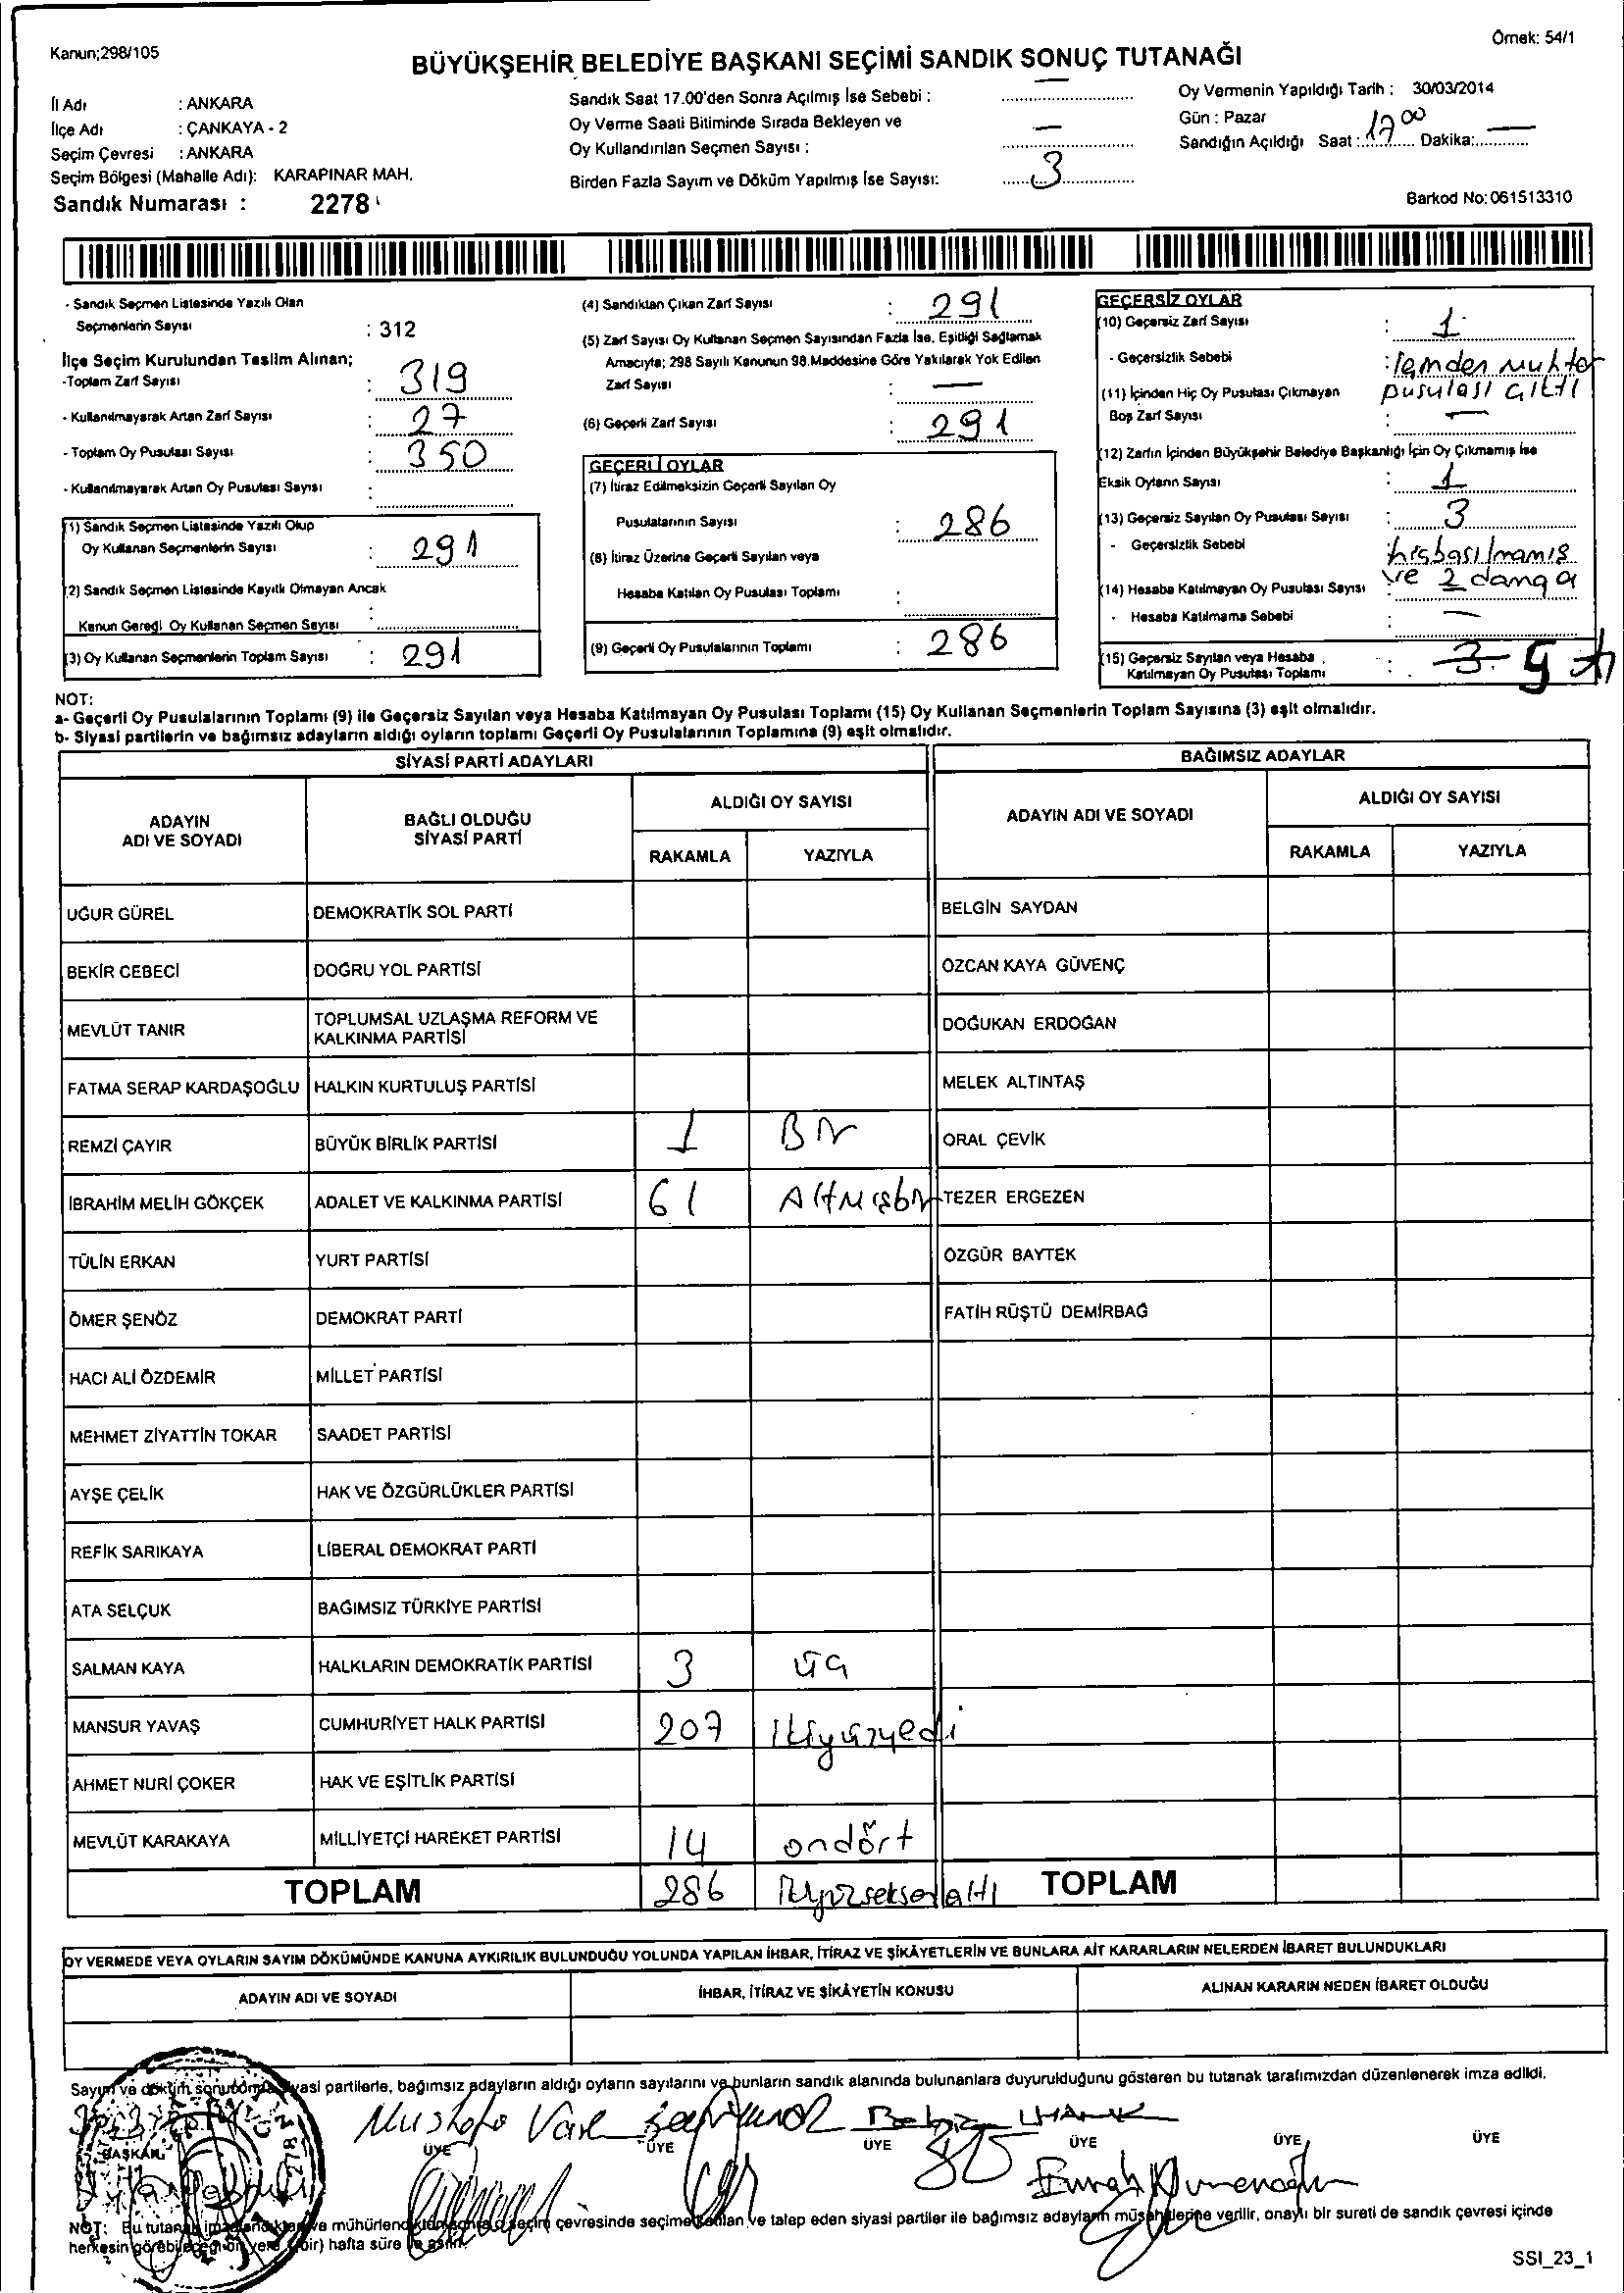 Kanun;298/105
Örnek: 54/1
BÜYÜKŞEHİR BELEDİYE BAŞKANI SEÇİMİ SANDIK SONUÇ TUTANAĞI
İl Adı : ANKARA
İlçe Adı : ÇANKAYA - 2
Seçim Çevresi : ANKARA
Seçim Bölgesi (Mahalle Adı): KARAPINAR MAH.
Sandık Numarası : 2278
Sandık Saat 17.00'den Sonra Açılmış İse Sebebi : —
Oy Verme Saati Bitiminde Sırada Bekleyen ve
Oy Kullandırılan Seçmen Sayısı : —
Birden Fazla Sayım ve Döküm Yapılmış İse Sayısı: 3
Oy Vermenin Yapıldığı Tarih : 30/03/2014
Gün : Pazar
Sandığın Açıldığı Saat : 17 00 Dakika: —
Barkod No: 061513310
- Sandık Seçmen Listesinde Yazılı Olan
Seçmenlerin Sayısı : 312
İlçe Seçim Kurulundan Teslim Alınan;
-Toplam Zarf Sayısı : 319
- Kullanılmayarak Artan Zarf Sayısı : 27
- Toplam Oy Pusulası Sayısı : 350
- Kullanılmayarak Artan Oy Pusulası Sayısı :
(1) Sandık Seçmen Listesinde Yazılı Olup
Oy Kullanan Seçmenlerin Sayısı : 291
(2) Sandık Seçmen Listesinde Kayıtlı Olmayan Ancak
Kanun Gereği Oy Kullanan Seçmen Sayısı :
(3) Oy Kullanan Seçmenlerin Toplam Sayısı : 291
(4) Sandıktan Çıkan Zarf Sayısı : 291
(5) Zarf Sayısı Oy Kullanan Seçmen Sayısından Fazla İse, Eşitliği Sağlamak
Amacıyla; 298 Sayılı Kanunun 98.Maddesine Göre Yakılarak Yok Edilen
Zarf Sayısı : —
(6) Geçerli Zarf Sayısı : 291
GEÇERLİ OYLAR
(7) İtiraz Edilmeksizin Geçerli Sayılan Oy
Pusulalarının Sayısı : 286
(8) İtiraz Üzerine Geçerli Sayılan veya
Hesaba Katılan Oy Pusulası Toplamı :
(9) Geçerli Oy Pusulalarının Toplamı : 286
GEÇERSİZ OYLAR
(10) Geçersiz Zarf Sayısı : 1
- Geçersizlik Sebebi : İçinden Muhtar
pusulası çıktı
(11) İçinden Hiç Oy Pusulası Çıkmayan
Boş Zarf Sayısı : —
(12) Zarfın İçinden Büyükşehir Belediye Başkanlığı İçin Oy Çıkmamış İse
Eksik Oyların Sayısı : 1
(13) Geçersiz Sayılan Oy Pusulası Sayısı : 3
- Geçersizlik Sebebi : hiç basılmamış
ve 2 damga
(14) Hesaba Katılmayan Oy Pusulası Sayısı :
- Hesaba Katılmama Sebebi : —
(15) Geçersiz Sayılan veya Hesaba
Katılmayan Oy Pusulası Toplamı : 3 5
NOT:
a- Geçerli Oy Pusulalarının Toplamı (9) ile Geçersiz Sayılan veya Hesaba Katılmayan Oy Pusulası Toplamı (15) Oy Kullanan Seçmenlerin Toplam Sayısına (3) eşit olmalıdır.
b- Siyasi partilerin ve bağımsız adayların aldığı oyların toplamı Geçerli Oy Pusulalarının Toplamına (9) eşit olmalıdır.
SİYASİ PARTİ ADAYLARI
ADAYIN
ADI VE SOYADI
BAĞLI OLDUĞU
SİYASİ PARTİ
ALDIĞI OY SAYISI
RAKAMLA YAZIYLA
UĞUR GÜREL DEMOKRATİK SOL PARTİ
BEKİR CEBECİ DOĞRU YOL PARTİSİ
MEVLÜT TANIR TOPLUMSAL UZLAŞMA REFORM VE
KALKINMA PARTİSİ
FATMA SERAP KARDAŞOĞLU HALKIN KURTULUŞ PARTİSİ
REMZİ ÇAYIR BÜYÜK BİRLİK PARTİSİ 1 Bir
İBRAHİM MELİH GÖKÇEK ADALET VE KALKINMA PARTİSİ 61 Altmışbir
TÜLİN ERKAN YURT PARTİSİ
ÖMER ŞENÖZ DEMOKRAT PARTİ
HACI ALİ ÖZDEMİR MİLLET PARTİSİ
MEHMET ZİYATTİN TOKAR SAADET PARTİSİ
AYŞE ÇELİK HAK VE ÖZGÜRLÜKLER PARTİSİ
REFİK SARIKAYA LİBERAL DEMOKRAT PARTİ
ATA SELÇUK BAĞIMSIZ TÜRKİYE PARTİSİ
SALMAN KAYA HALKLARIN DEMOKRATİK PARTİSİ 3 üç
MANSUR YAVAŞ CUMHURİYET HALK PARTİSİ 207 ikiyüzyedi
AHMET NURİ ÇOKER HAK VE EŞİTLİK PARTİSİ
MEVLÜT KARAKAYA MİLLİYETÇİ HAREKET PARTİSİ 14 ondört
TOPLAM 286 ikiyüzseksenaltı
BAĞIMSIZ ADAYLAR
ADAYIN ADI VE SOYADI
ALDIĞI OY SAYISI
RAKAMLA YAZIYLA
BELGİN SAYDAN
ÖZCAN KAYA GÜVENÇ
DOĞUKAN ERDOĞAN
MELEK ALTINTAŞ
ORAL ÇEVİK
TEZER ERGEZEN
ÖZGÜR BAYTEK
FATİH RÜŞTÜ DEMİRBAĞ
TOPLAM
OY VERMEDE VEYA OYLARIN SAYIM DÖKÜMÜNDE KANUNA AYKIRILIK BULUNDUĞU YOLUNDA YAPILAN İHBAR, İTİRAZ VE ŞİKÂYETLERİN VE BUNLARA AİT KARARLARIN NELERDEN İBARET BULUNDUKLARI
ADAYIN ADI VE SOYADI
İHBAR, İTİRAZ VE ŞİKÂYETİN KONUSU
ALINAN KARARIN NEDEN İBARET OLDUĞU
Sayım ve döküm sonucunda siyasi partilerle, bağımsız adayların aldığı oyların sayılarını ve bunların sandık alanında bulunanlara duyurulduğunu gösteren bu tutanak tarafımızdan düzenlenerek imza edildi.
Mustafa
BAŞKAN ÜYE ÜYE ÜYE ÜYE ÜYE ÜYE
NOT: Bu tutanak imzalandıktan ve mühürlendikten sonra o seçim çevresinde seçime katılan ve talep eden siyasi partiler ile bağımsız adayların müşahitlerine verilir, onaylı bir sureti de sandık çevresi içinde
herkesin görebileceği bir yere (bir) hafta süre ile asılır.
SSI_23_1